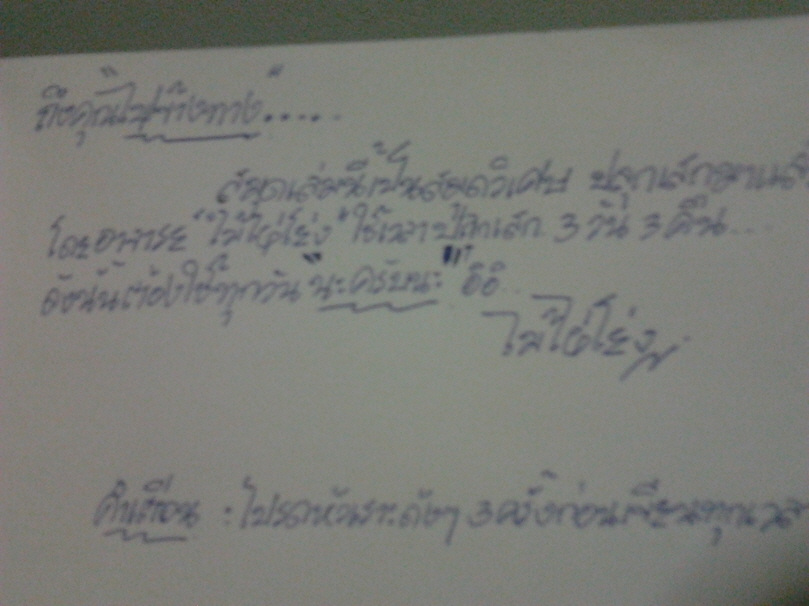 ถึงคุณ"ไม่ข้างทาง".....
สมุดเล่มนี้เป็นสมุดวิเศษ ปลุกเสกมาแล้
โดยอาจารย์ "ไม้ไผ่โย่ง" ใช้เวลาปลุกเสก 3 วัน 3 คืน....
ดังนั้นต้องใช้ทุกวัน "นะครับนะ" !!! อิอิ..
ไม้ไผ่โย่ง
คำเตือน : โปรดหัวเราะดังๆ 3 ครั้งก่อนเขียนทุก